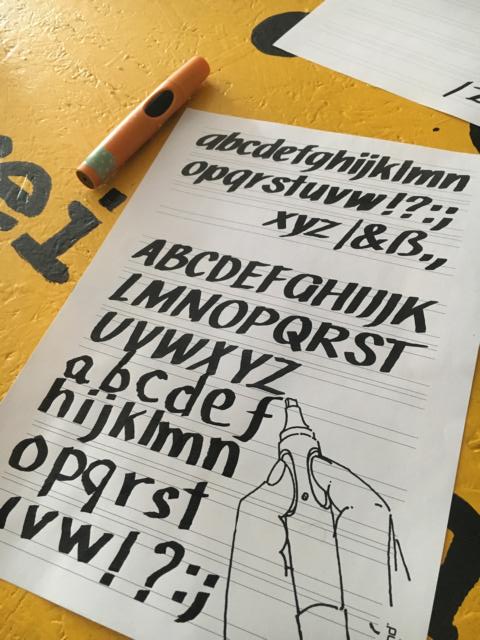 abcdefghijklmn
opqrstuvw!?:;
xyz |&ß.,
ABCDEFGHIJK
LMNOPQRST
UVWXYZ
abcdef
hijklmn
opqrst
vw!?:;
ei